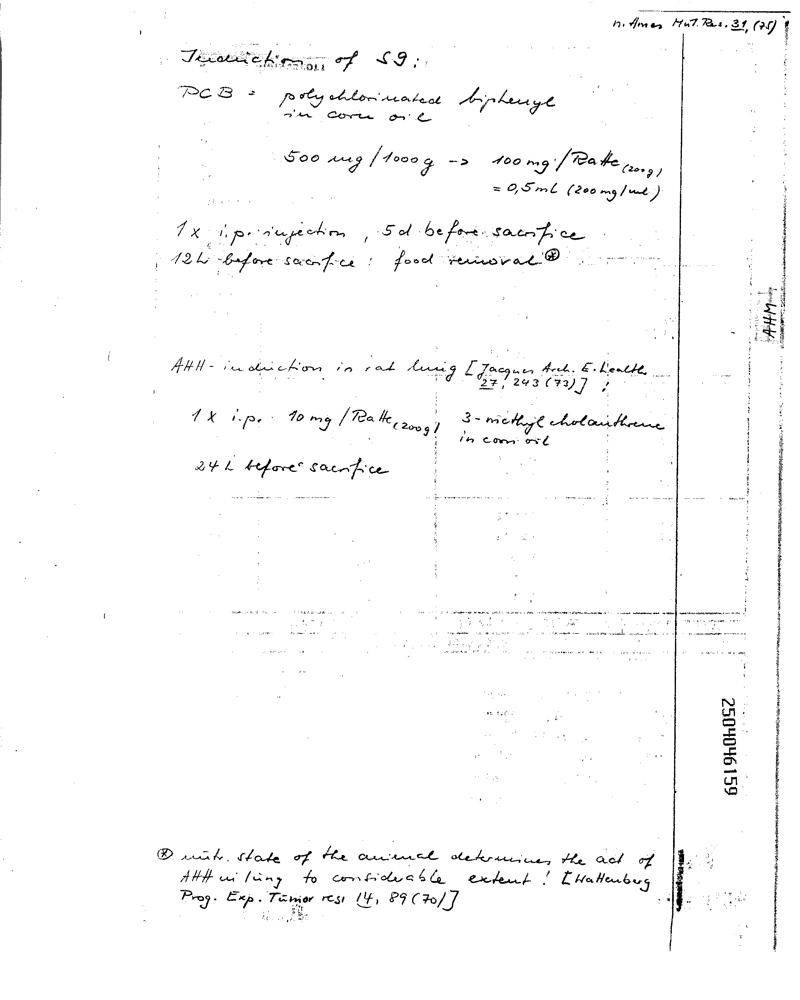 n. Ames Mut. Res. 31, (75)
Induction of S9:
PCB = polychlorinated biphenyl
in corn oil
500 mg/1000g -> 100 mg/Ratte (200g)
= 0,5 mL (200 mg/ml)
1 x i.p. injection, 5d before sacrifice
12h before sacrifice: food removal ⊛
AHM
AHH-induction in rat lung [Jacques Arch. E. Health
27, 243 (73)] !
1 x i.p. 10 mg/Ratte (200g) 3-methylcholanthrene
in corn oil
24 h before sacrifice
2504046159
⊛ nutr. state of the animal determines the act of
AHH in lung to considerable extent! [Wattenberg
Prog. Exp. Tumor res. 14, 89 (70)]